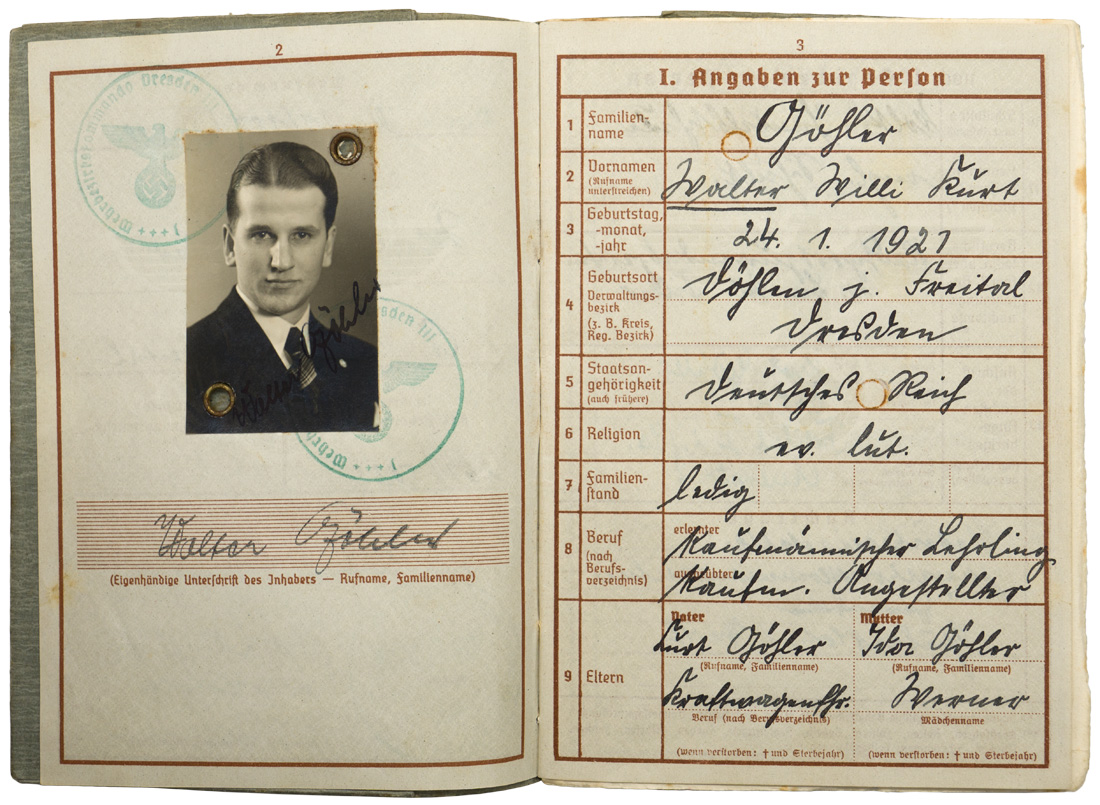 2
Wehrbezirkskommando Dresden III
Walter Göhler
Walter Göhler
(Eigenhändige Unterschrift des Inhabers — Rufname, Familienname)
3
I. Angaben zur Person
1 Familien-
name
Göhler
2 Vornamen
(Rufname
unterstreichen)
Walter Willi Kurt
3 Geburtstag,
-monat,
-jahr
24. 1. 1921
4 Geburtsort
Verwaltungs-
bezirk
(z. B. Kreis,
Reg. Bezirk)
Döhlen j. Freital
Dresden
5 Staatsan-
gehörigkeit
(auch frühere)
Deutsches Reich
6 Religion
ev. lut.
7 Familien-
stand
ledig
8 Beruf
(nach
Berufs-
verzeichnis)
erlernter
Kaufmännischer Lehrling
ausgeübter
Kaufm. Angestellter
9 Eltern
Vater Mutter
Kurt Göhler Ida Göhler
(Rufname, Familienname) (Rufname, Familienname)
Kraftwagenfhr. Werner
Beruf (nach Berufsverzeichnis) Mädchenname
(wenn verstorben: † und Sterbejahr) (wenn verstorben: † und Sterbejahr)